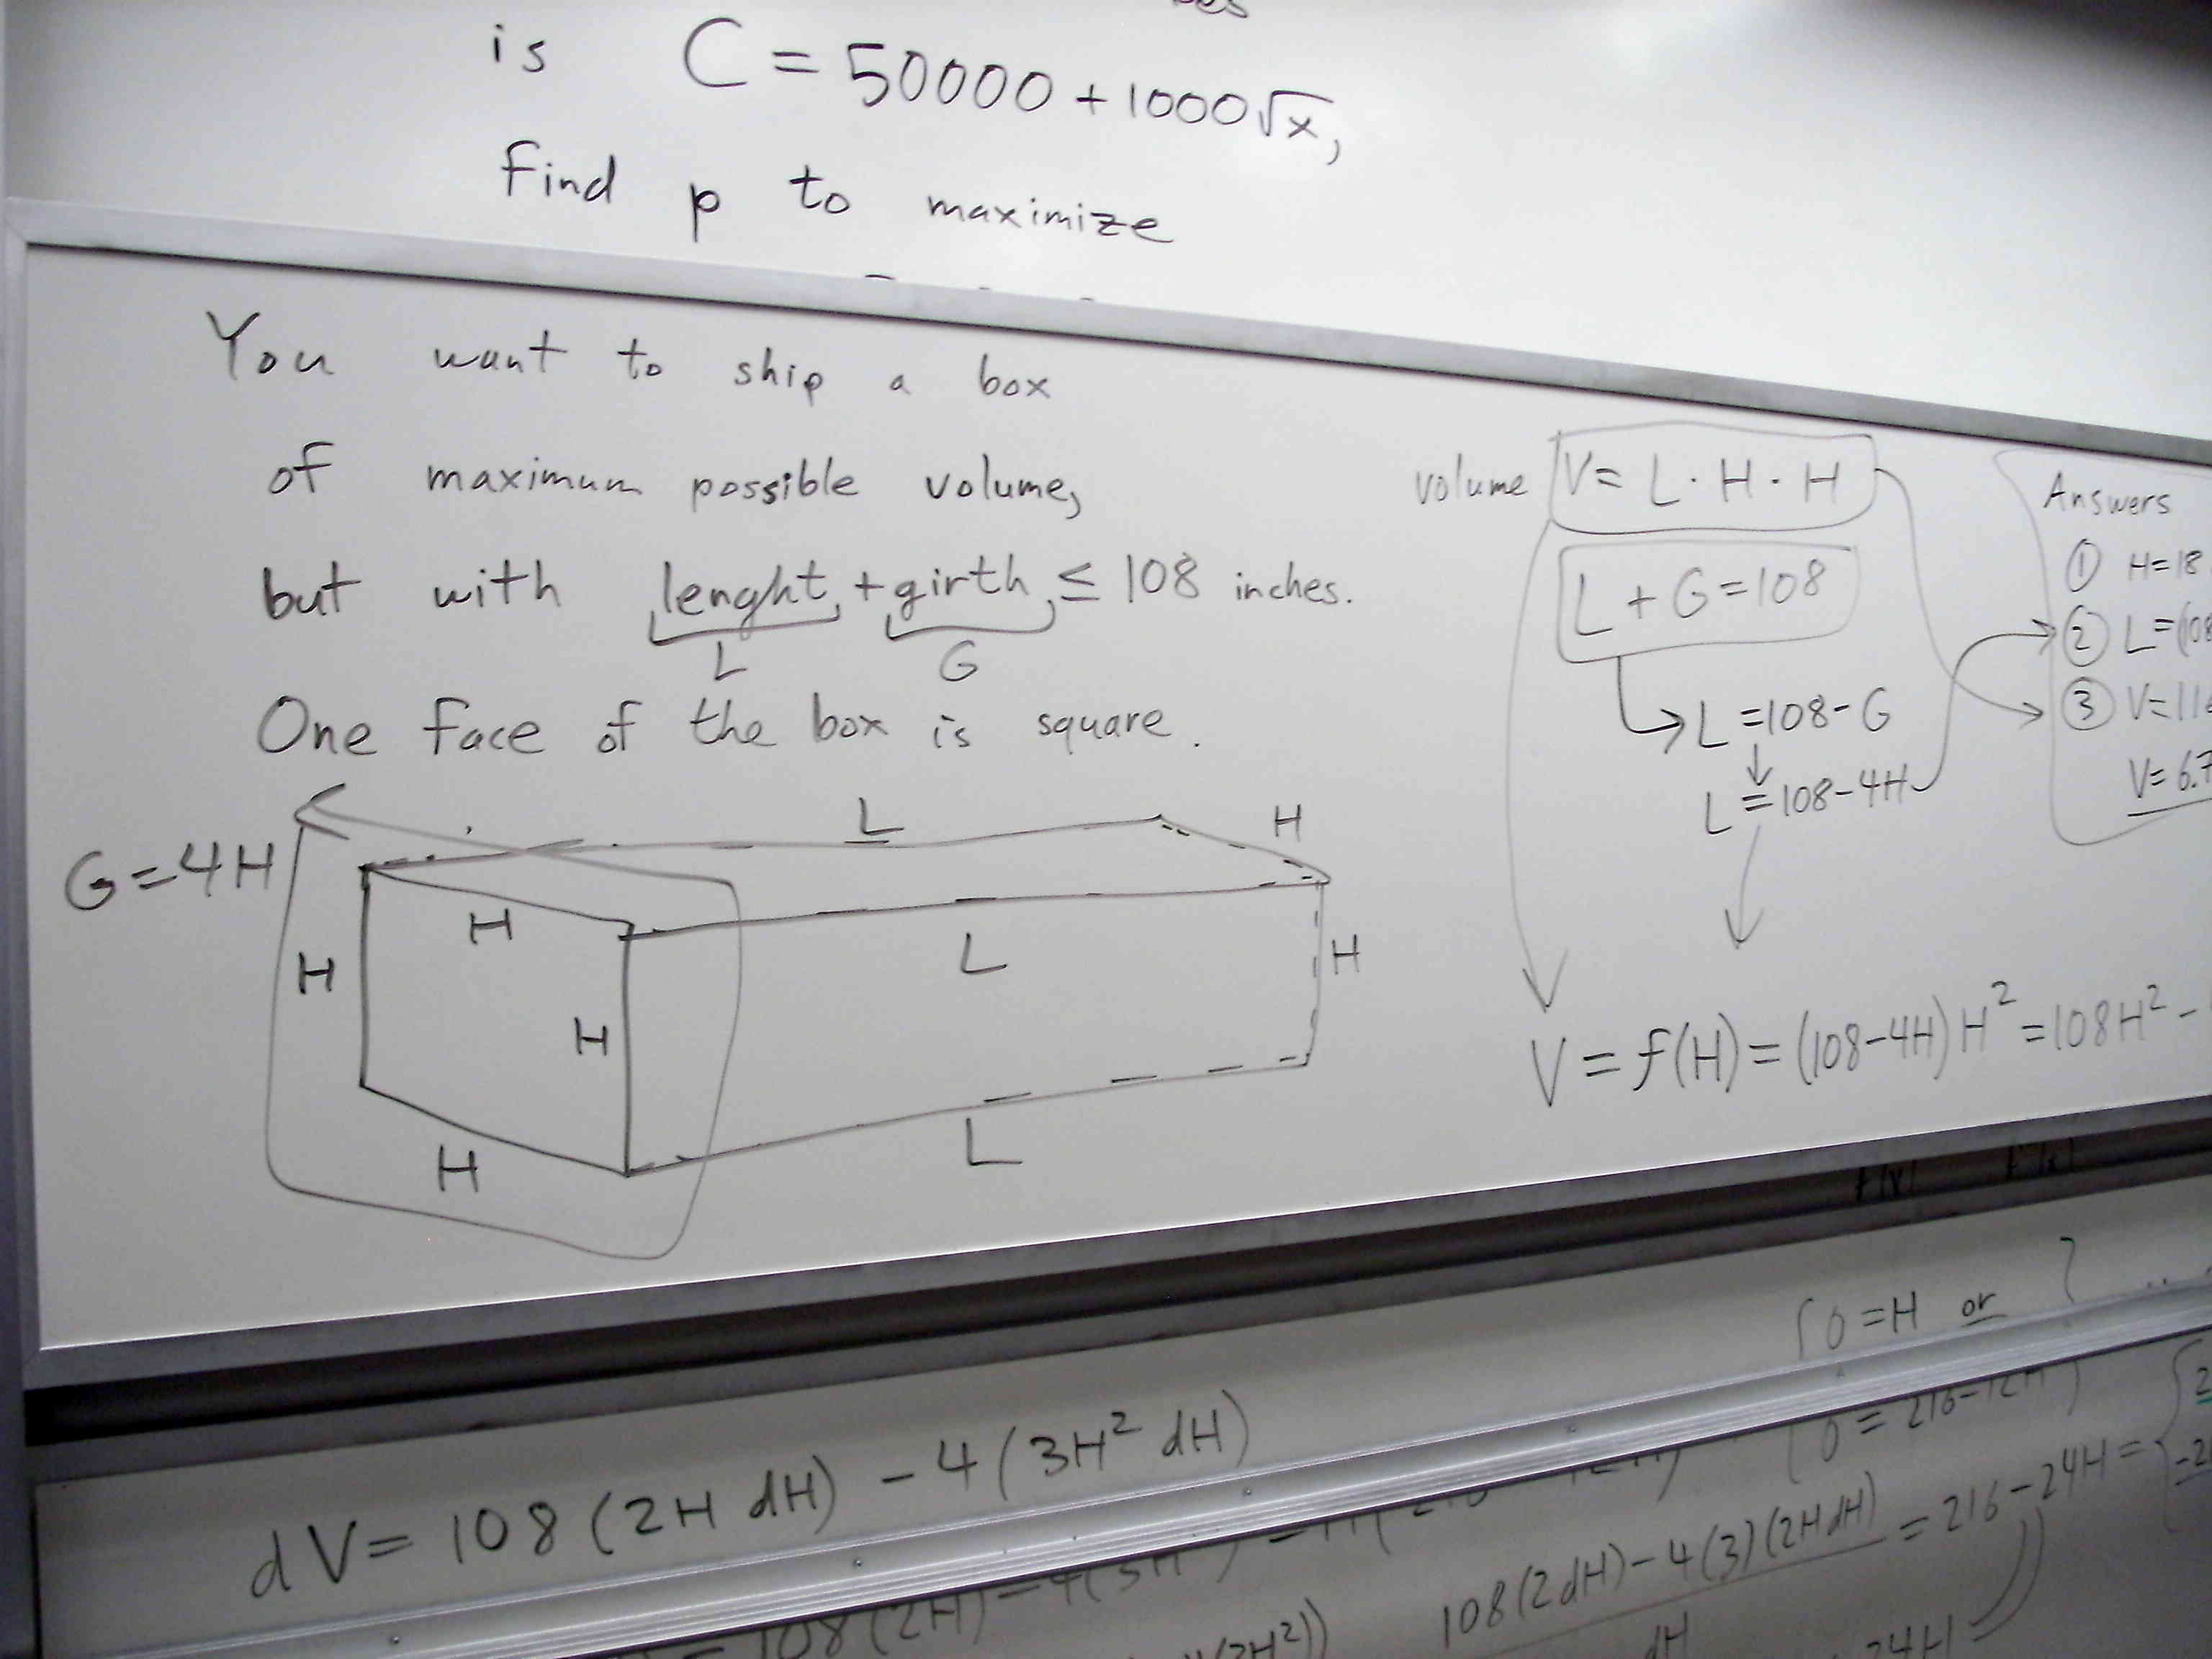 is C = 50000 + 1000√x,
find p to maximize
You want to ship a box
of maximum possible volume,
but with lenght + girth ≤ 108 inches.
L G
One face of the box is square.
G = 4H
L
H
H
H
H
L
H
H
L
volume V = L · H · H
L + G = 108
L = 108 - G
L = 108 - 4H
V = f(H) = (108-4H) H² = 108H² -
Answers
① H = 18
② L = (108
③ V = 116
V = 6.7
0 = H or
0 = 216 - 12H
dV = 108 (2H dH) - 4 (3H² dH)
108(2dH) - 4(3)(2HdH) = 216 - 24H =
dH
= 108(2H) - 4(3H
24H